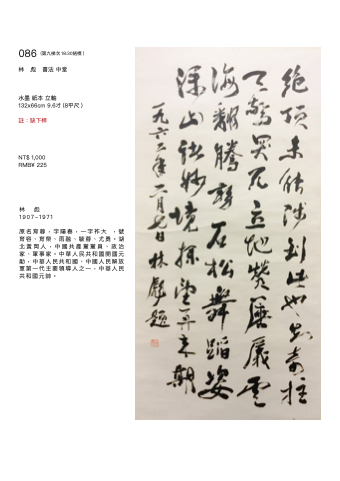 086 （第九梯次 18:30結標）
林 彪 書法 中堂
水墨 紙本 立軸
132x66cm 9.6才 (8平尺 )
註：缺下桿
NT$ 1,000
RMB¥ 225
林 彪
1907-1971
原名育蓉，字陽春，一字祚大 ，號
育容、育榮、雨敖、毓蓉、尤勇，湖
北黃岡人，中國共產黨黨員、政治
家、軍事家，中華人民共和國開國元
勛，中華人民共和國、中國人民解放
軍第一代主要領導人之一，中華人民
共和國元帥。
絕頂未能涉到此也知奇柱
天驚突兀立地雲
海翻騰石松舞蹈姿
深山說妙境探望再來期
一九六二年二月七日林彪題